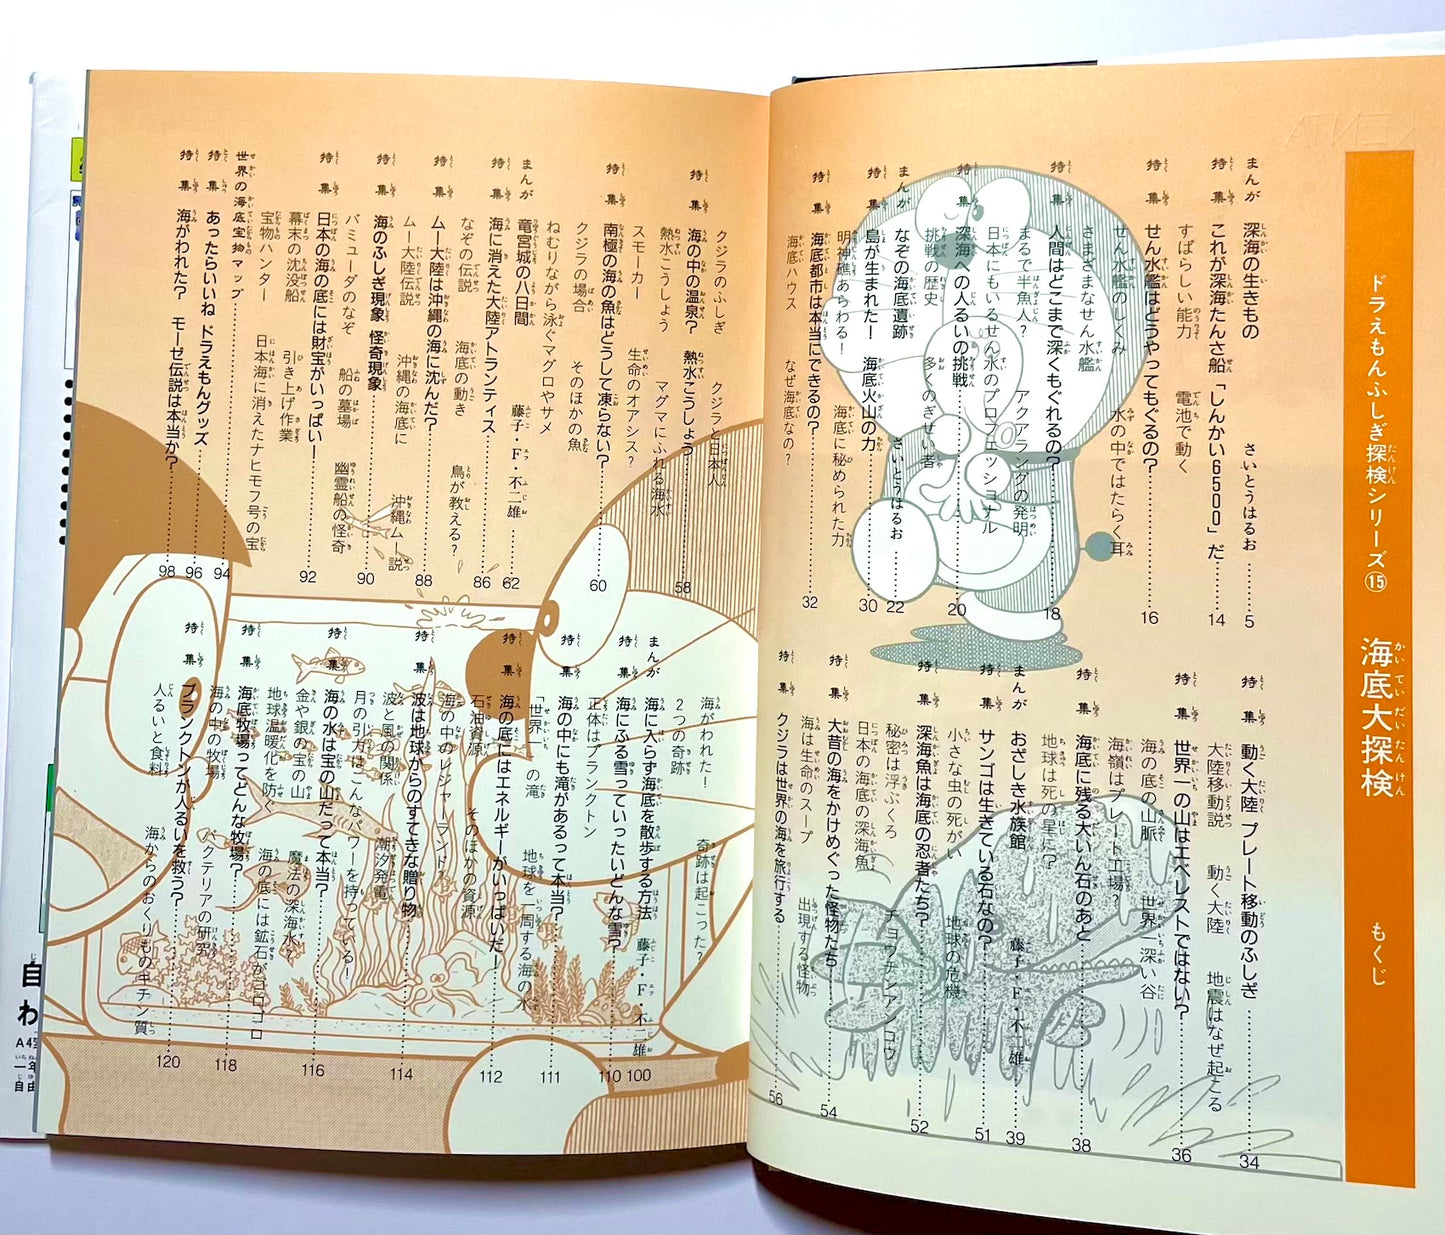 ドラえもんふしぎ探検シリーズ⑮ 海底大探検 もくじ
まんが 深海の生きもの さいとうはるお……5
特集 これが深海たんさ船「しんかい6500」だ……14
すばらしい能力 電池で動く
特集 せん水艦はどうやってもぐるの?……16
せん水艦のしくみ 水の中ではたらく耳
さまざまなせん水艦
特集 人間はどこまで深くもぐれるの?……18
まるで半魚人? アクアラングの発明
日本にもいるせん水のプロフェッショナル
特集 深海への人るいの挑戦……20
挑戦の歴史 多くのぎせい者
まんが なぞの海底遺跡 さいとうはるお……22
特集 島が生まれた! 海底火山の力……30
明神礁あらわる! 海底に秘められた力
特集 海底都市は本当にできるの?……32
海底ハウス なぜ海底なの?
特集 動く大陸 プレート移動のふしぎ……34
大陸移動説 動く大陸 地震はなぜ起こる
特集 世界一の山はエベレストではない?……36
海の底の山脈 世界一深い谷
海嶺はプレート工場?
特集 海底に残る大いん石のあと……38
地球は死の星に?
まんが おざしき水族館 藤子・F・不二雄……39
特集 サンゴは生きている石なの?……51
小さな虫の死がい 地球の危機
特集 深海魚は海底の忍者たち?……52
秘密は浮ぶくろ チョウチンアンコウ
日本の海底の深海魚
特集 大昔の海をかけめぐった怪物たち……54
海は生命のスープ 出現する怪物
特集 クジラは世界の海を旅行する……56
クジラのふしぎ クジラと日本人
特集 海の中の温泉? 熱水こうしょう……58
熱水こうしょう マグマにふれる海水
スモーカー 生命のオアシス?
特集 南極の海の魚はどうして凍らない?……60
クジラの場合 そのほかの魚
ねむりながら泳ぐマグロやサメ
まんが 竜宮城の八日間 藤子・F・不二雄……62
特集 海に消えた大陸アトランティス……86
なぞの伝説 海底の動き 鳥が教える?
特集 ムー大陸は沖縄の海に沈んだ?……88
ムー大陸伝説 沖縄の海底に 沖縄ムー説
特集 海のふしぎ現象 怪奇現象……90
バミューダのなぞ 船の墓場 幽霊船の怪奇
特集 日本の海の底には財宝がいっぱい!……92
幕末の沈没船 引き上げ作業
宝物ハンター 日本海に消えたナヒモフ号の宝
世界の海底宝物マップ……94
特集 あったらいいね ドラえもんグッズ……96
特集 海がわれた? モーゼ伝説は本当か?……98
海がわれた! 奇跡は起こった?
2つの奇跡
まんが 海に入らず海底を散歩する方法 藤子・F・不二雄……100
特集 海にふる雪っていったいどんな雪?……110
正体はプランクトン
特集 海の中にも滝があるって本当?……111
「世界一」の滝 地球を一周する海の水
特集 海の底にはエネルギーがいっぱいだ!……112
石油資源 そのほかの資源
海の中のレジャーランド?
特集 波は地球からのすてきな贈り物……114
波と風の関係 潮汐発電
月の引力はこんなパワーを持っている!
特集 海の水は宝の山だって本当?……116
金や銀の宝の山 魔法の深海水?
地球温暖化を防ぐ 海の底には鉱石がゴロゴロ
特集 海底牧場ってどんな牧場?……118
海の中の牧場 バクテリアの研究
特集 プランクトンが人るいを救う?……120
人るいと食料 海からのおくりものキチン質